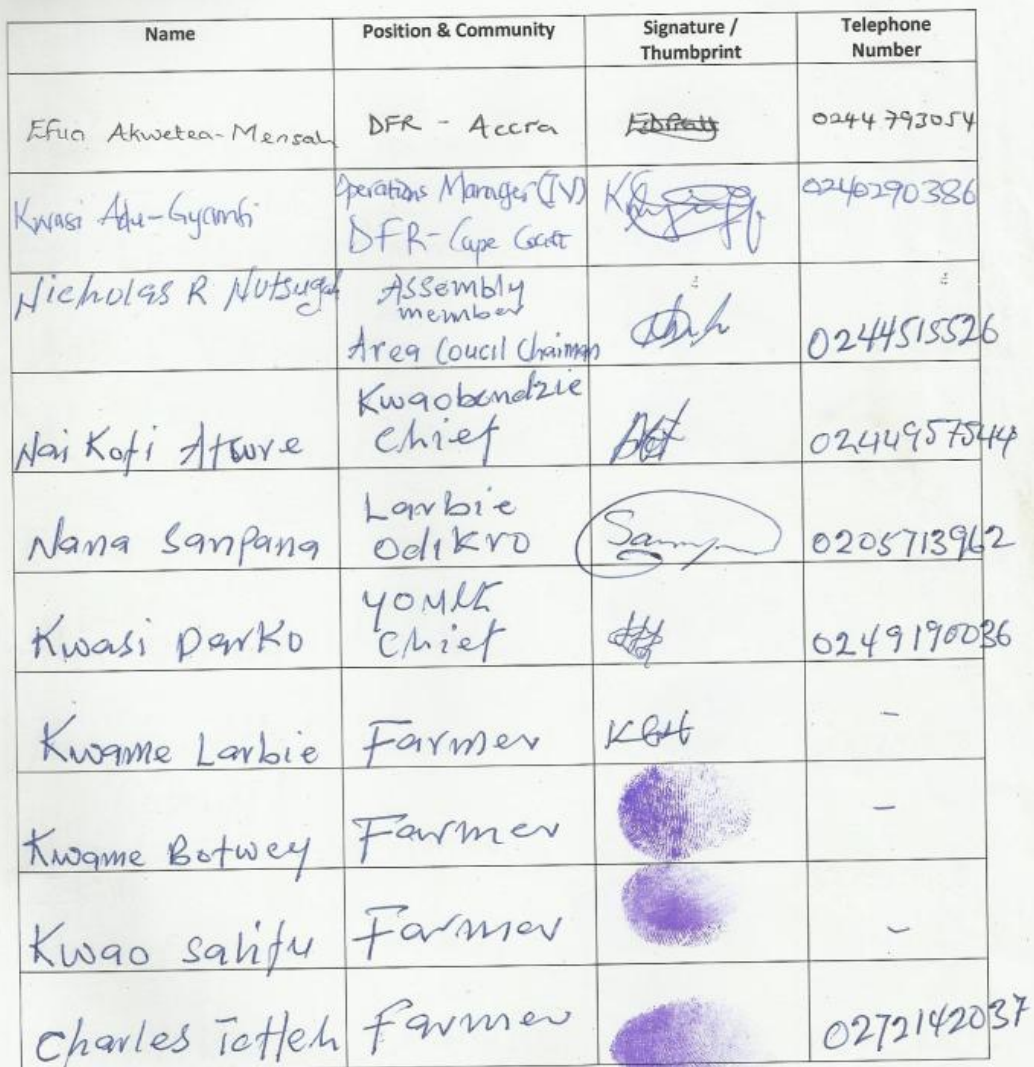 Name Position & Community Signature / Telephone
Thumbprint Number
Efua Akwetea-Mensah DFR - Accra 0244 793054
Kwasi Adu-Gyamfi Operations Manager (IV) 0240290386
DFR - Cape Coast
Nicholas R Nutsugah Assembly
member
Area Coucil Chairman 0244515526
Kwaobendzie
Nai Kofi Chief 0244957544
Larbie
Nana Sanpana Odikro 0205713962
Youth
Kwasi Darko Chief 0249190036
Kwame Larbie Farmer KBH -
Kwame Botwey Farmer -
Kwao Salifu Farmer -
Charles Tetteh Farmer 0272142037